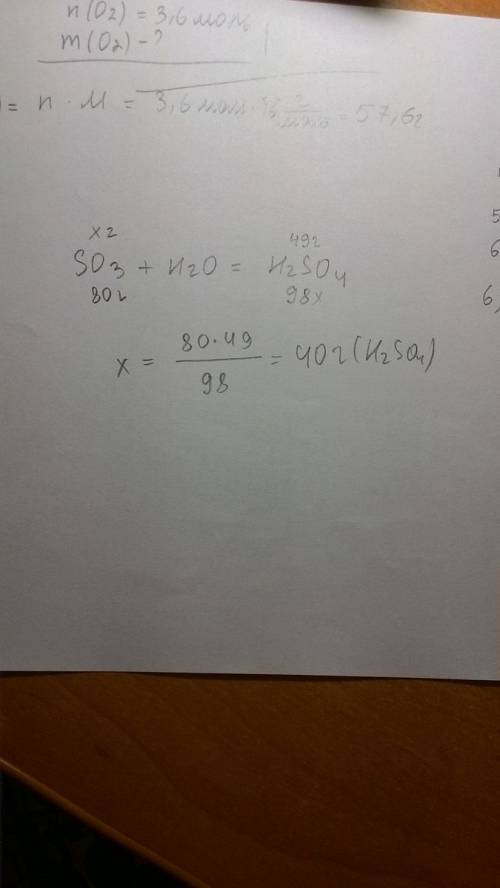 n(O₂) = 3,6 моль
m(O₂) - ?
= n · M = 3,6 моль · = 57,6 г
x г 49 г
SO₃ + H₂O = H₂SO₄
80 г 98 г
x = 80·49 / 98 = 40 г (H₂SO₄)
5
6
6,